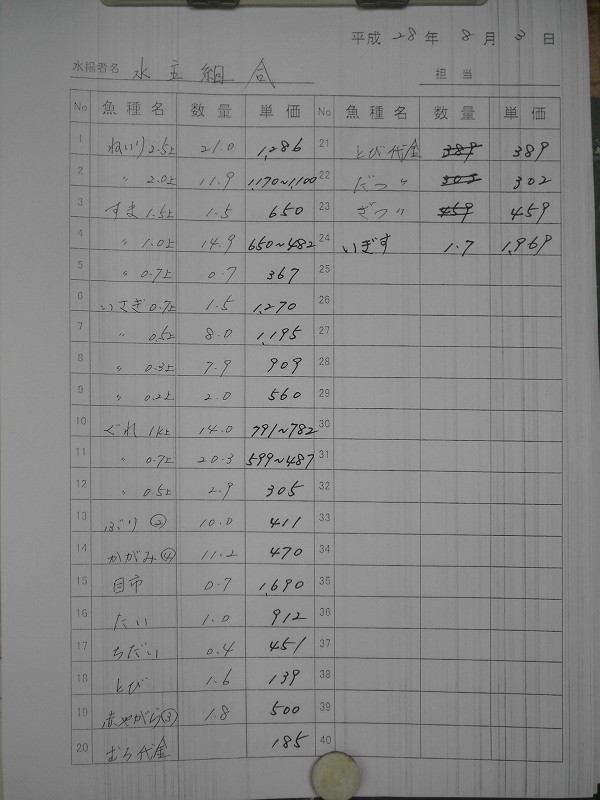 平成 28 年 8 月 3 日
水揚者名 水主組合
担当
No 魚種名 数量 単価 No 魚種名 数量 単価
1 ねいり 2.5上 21.0 1,286 21 とび代金 389 389
2 〃 2.0上 11.9 1,170~1,100 22 だつ 〃 303 302
3 すま 1.5上 1.5 650 23 ざつ 〃 459 459
4 〃 1.0上 14.9 650~482 24 いぎす 1.7 1,969
5 〃 0.7上 0.7 367 25
6 いさぎ 0.7上 1.5 1,270 26
7 〃 0.5上 8.0 1,195 27
8 〃 0.3上 7.9 909 28
9 〃 0.2上 2.0 560 29
10 ぐれ 1k上 14.0 791~782 30
11 〃 0.7上 20.3 599~487 31
12 〃 0.5上 2.9 305 32
13 ぶり ② 10.0 411 33
14 かがみ ④ 11.2 470 34
15 目市 0.7 1,690 35
16 たい 1.0 912 36
17 ちだい 0.4 451 37
18 とび 1.6 139 38
19 赤やがら ③ 1.8 500 39
20 むろ代金 185 40